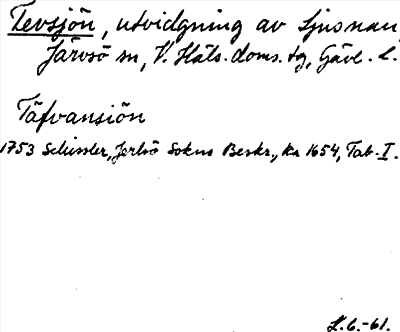 Tevsjön, utvidgning av Ljusnan,
Järvsö sn, V. Häls. doms. tg, Gävl. l.
Täfvansiön
1753 Schissler, Jerfsö Sokns Beskr., Kr 1654, Tab. I.
H. 6.-61.